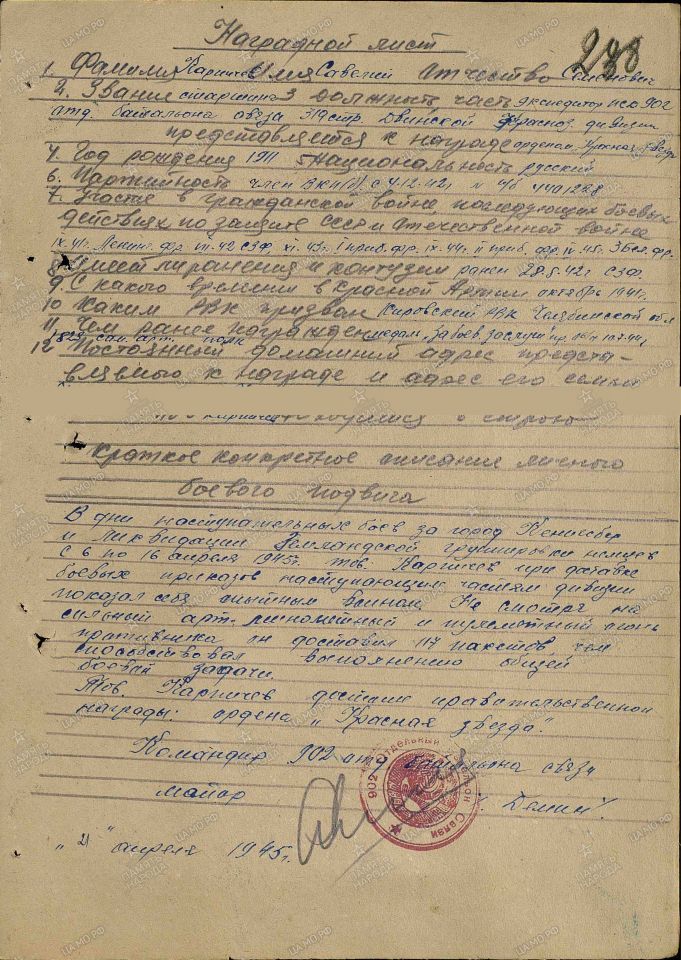 Наградной лист
238
1. Фамилия Карпичев Имя Савелий Отчество Семенович
2. Звание старшина 3 должность, часть экспедитор ПСО 902
отд. батальона связи 319 стр. Двинской Красноз. дивизии
представляется к награде орденом "Красная звезда"
4. Год рождения 1911 5 Национальность русский
6. Партийность член ВКП(б) с 4.12.42г. №
7. Участие в гражданской войне, последующих боевых
действиях по защите СССР и отечественной войне
8 Имеет ли ранения и контузии ранен 28.8.42г. СЗФ.
9. С какого времени в Красной Армии октябрь 1941г.
10 Каким РВК призван Кировский РВК Челябинской обл
11 Чем ранее награжден медаль "За боев. заслуги"
12 Постоянный домашний адрес предста-
вляемого к награде и адрес его семьи
Краткое конкретное описание личного
боевого подвига
В дни наступательных боев за город Кенигсбер
и ликвидации Земландской группировки немцев
с 6 по 16 апреля 1945г. тов. Карпичев при доставке
боевых приказов наступающим частям дивизии
показал себя опытным воином. Не смотря на
сильный арт. минометный и пулеметный огонь
противника он доставил 117 пакетов, чем
способствовал выполнению общей
боевой задачи.
Тов. Карпичев достоин правительственной
награды: ордена "Красная звезда".
Командир 902 отд батальона связи
майор /Демин/.
"21" апреля 1945г.